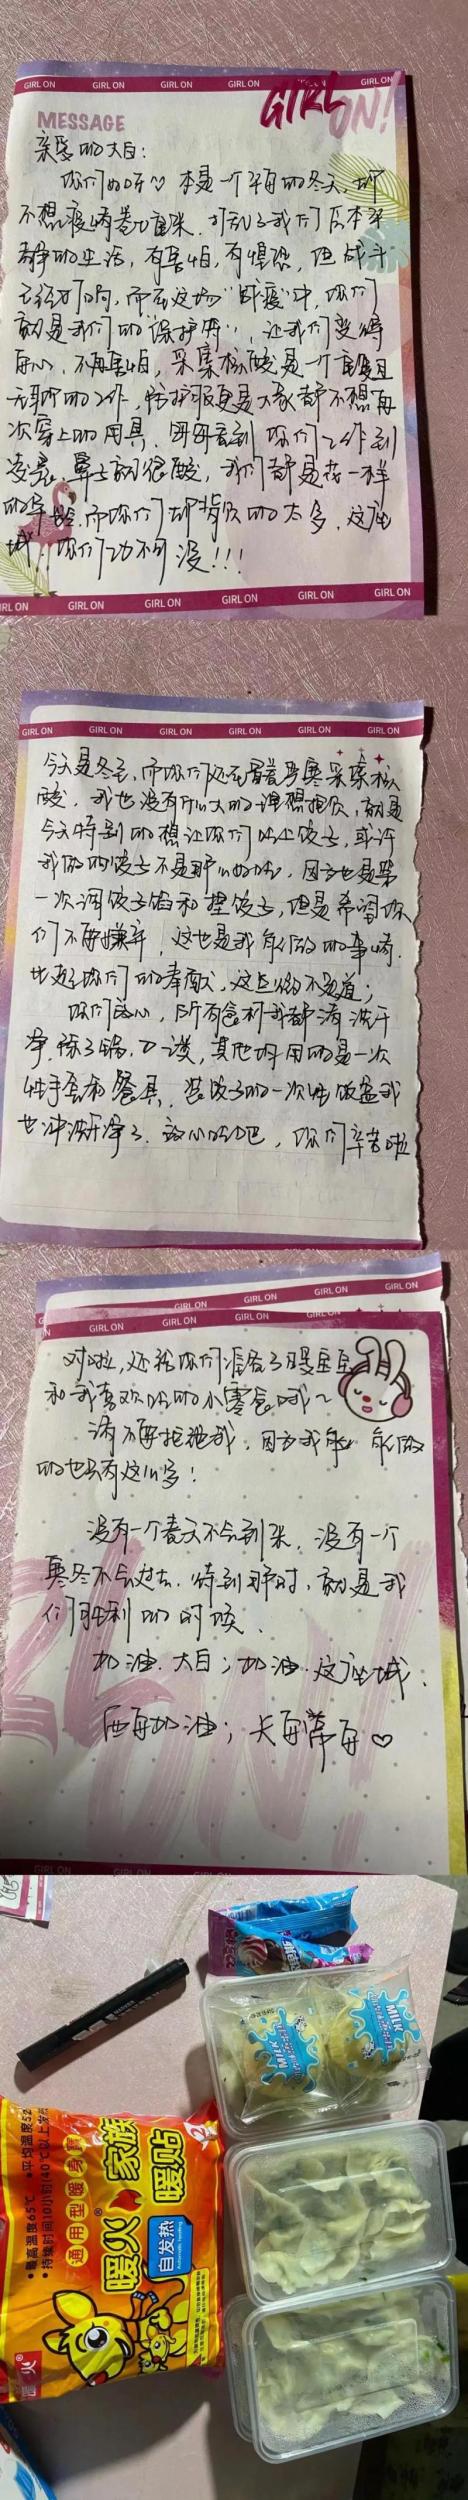 GIRL ON GIRL ON GIRL ON GIRL ON GIRL ON
GIRL ON!
MESSAGE
亲爱的大白：
你们好呀♡ 本是一个平淡的冬天，却
不想疫情卷土重来，打乱了我们原本平
静的生活，有害怕，有惶恐，但战斗
已经打响，而在这场“战疫”中，你们
就是我们的“保护伞”，让我们变得
安心，不再害怕，采集核酸是一个重复且
无聊的工作，防护服更是大家都不想再
次穿上的用具，每每看到你们工作到
凌晨，鼻子就很酸，我们都是花一样
的年龄，而你们却背负的太多，这座
城，你们功不可没！！！
GIRL ON GIRL ON GIRL ON GIRL ON GIRL ON
GIRL ON GIRL ON GIRL ON GIRL ON GIRL ON
今天是冬至，而你们还在冒着严寒采集核
酸，我也没有什么大的理想抱负，就是
今天特别的想让你们吃上饺子，或许
我做的饺子不是那么好吃，因为也是第
一次调饺子馅和捏饺子，但是希望你
们不要嫌弃，这也是我能做的事情，
比起你们的奉献，这点微不足道；
你们放心，所有食材我都清洗干
净，除了锅，笊篱，其他均用的是一次
性手套和餐具，装饺子的一次性饭盒我
也冲洗干净了，放心吃吧，你们辛苦啦
GIRL ON GIRL ON GIRL ON GIRL ON
对啦，还给你们准备了暖宝宝
和我喜欢吃的小零食哦～
请不要拒绝我，因为我能 能做
的也只有这么多！
没有一个春天不会到来，没有一个
寒冬不会过去，待到那时，就是我
们胜利的时候，
加油，大白；加油，这座城，
西安加油；长安常安♡
GIRL ON GIRL ON GIRL ON GIRL ON
MILK
MILK
暖火家族
暖贴
自发热
通用型暖身贴
最高温度65℃ 平均温度52
持续时间10小时(40℃以上发热
暖火